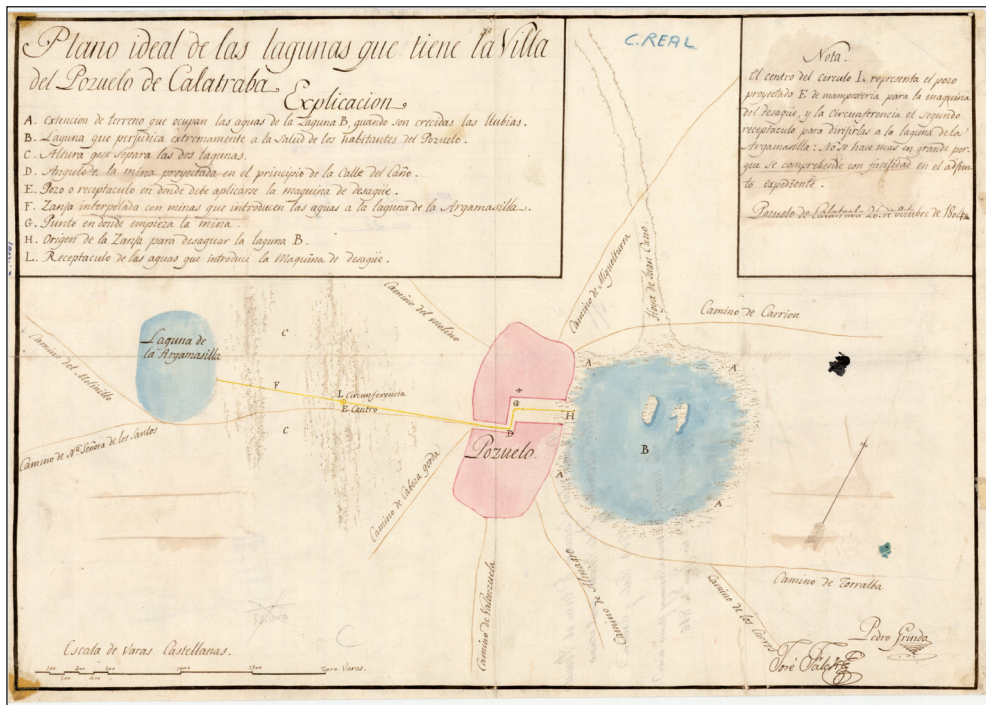 Plano ideal de las lagunas que tiene la Villa
del Pozuelo de Calatraba.
Explicacion.
A. extencion de terreno que ocupan las aguas de la Laguna B, quando son crecidas las llubias.
B. Laguna que perjudica extremamente a la Salud de los habitantes del Pozuelo.
C. Altura que separa las dos lagunas.
D. Angulo de la mina proyectada en el principio de la Calle del Caño.
E. Pozo o receptaculo en donde debe aplicarse la maquina de desagüe.
F. Zanja interpolada con minas que introducen las aguas a la laguna de la Argamasilla.
G. Punto en donde empieza la mina.
H. Origen de la Zanja para desaguar la laguna B.
L. Receptaculo de las aguas que introduci la Maquina de desagüe.
C. REAL
Nota.
El centro del circulo L, representa el pozo
proyectado E de mamposteria para la maquina
del desagüe, y la circumferencia el segundo
receptaculo para dirijirlas a la laguna de la
Argamasilla: No se hace mas en grande por-
que se comprehende con facilidad en el adjun-
to expediente.
Pozuelo de Calatraba 26 de Octubre de 1804
Camino del molino
Camino de Miguelturra
Hoya de Juan Cano
Camino de Carrion
Laguna de
la Argamasilla
Camino del Molinillo
C
F
L Circunferencia
E Centro
C
Camino de Nª. Señora de los Santos
G
D
H
Pozuelo
A
A
A
A
B
Camino de Cabeza gorda
Camino de Valenzuela
Camino de Almagro
Camino de los Carros
Camino de Torralba
Escala de Varas Castellanas.
1000
1500
2000 Varas.
Pedro
José